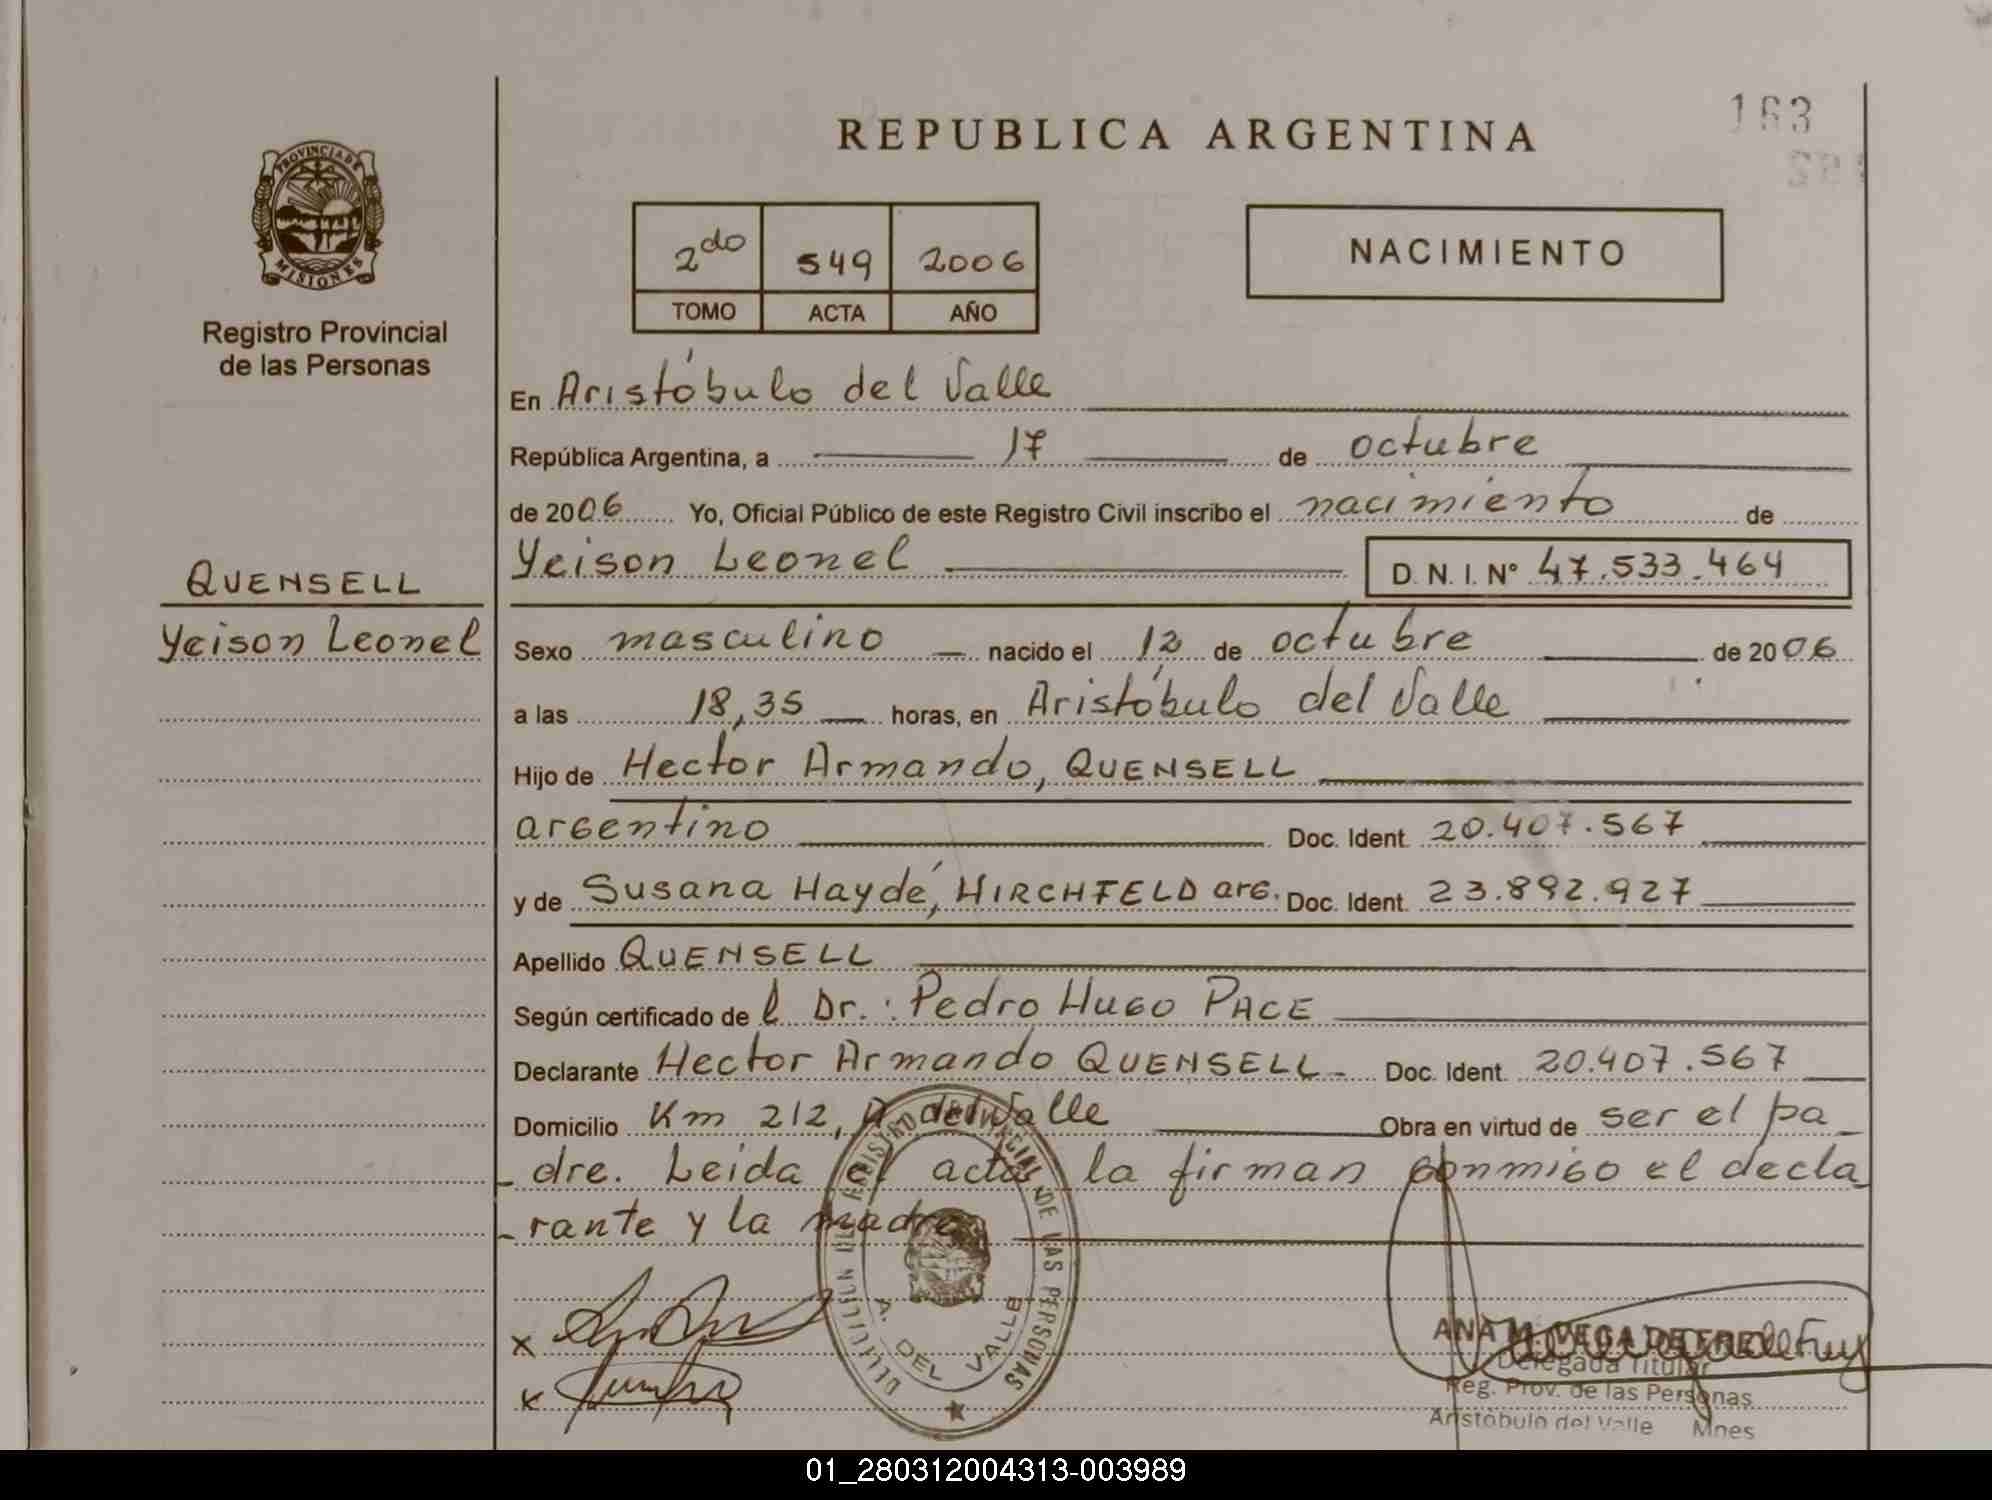 REPUBLICA ARGENTINA
163
PROVINCIA DE
MISIONES
Registro Provincial
de las Personas
2do 549 2006
TOMO ACTA AÑO
NACIMIENTO
En Aristóbulo del Valle
República Argentina, a 17 de octubre
de 2006 Yo, Oficial Público de este Registro Civil inscribo el nacimiento de
Yeison Leonel D. N. I. Nº 47.533.464
QUENSELL
Yeison Leonel
Sexo masculino nacido el 12 de octubre de 2006
a las 18,35 horas, en Aristóbulo del Valle
Hijo de Hector Armando, QUENSELL
argentino Doc. Ident. 20.407.567
y de Susana Haydé, HIRCHFELD arg. Doc. Ident. 23.892.927
Apellido QUENSELL
Según certificado de l Dr.: Pedro Hugo PACE
Declarante Hector Armando QUENSELL - Doc. Ident. 20.407.567
Domicilio Km 212, A. del Valle Obra en virtud de ser el pa_
_ dre. Leida el acta la firman conmigo el decla_
_ rante y la madre
x
x
REGISTRO PROVINCIAL DE LAS PERSONAS
A. DEL VALLE
ANA M. VEGA DE FREY
Delegada Titular
Reg. Prov. de las Personas
Aristóbulo del Valle Mnes
01_280312004313-003989